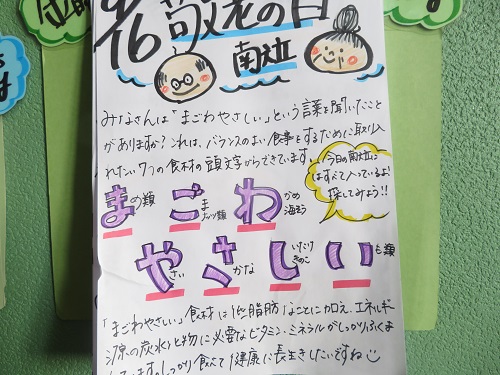 9/16 敬老の日
献立
みなさんは「まごわやさしい」という言葉を聞いたこと
がありますか？これは、バランスのよい食事をするために取り入
れたい7つの食材の頭文字からできています。
今日の献立に
はすべて入っているよ!
探してみよう!!
まの類 ごま ナッツ類 わかめ 海そう
やさい さかな しいたけ きのこ いも類
「まごわやさしい」食材は低脂肪なことに加え、エネルギ
源の炭水化物に必要なビタミン・ミネラルがしっかりふくま
しっかり食べて健康に長生きしたいですね